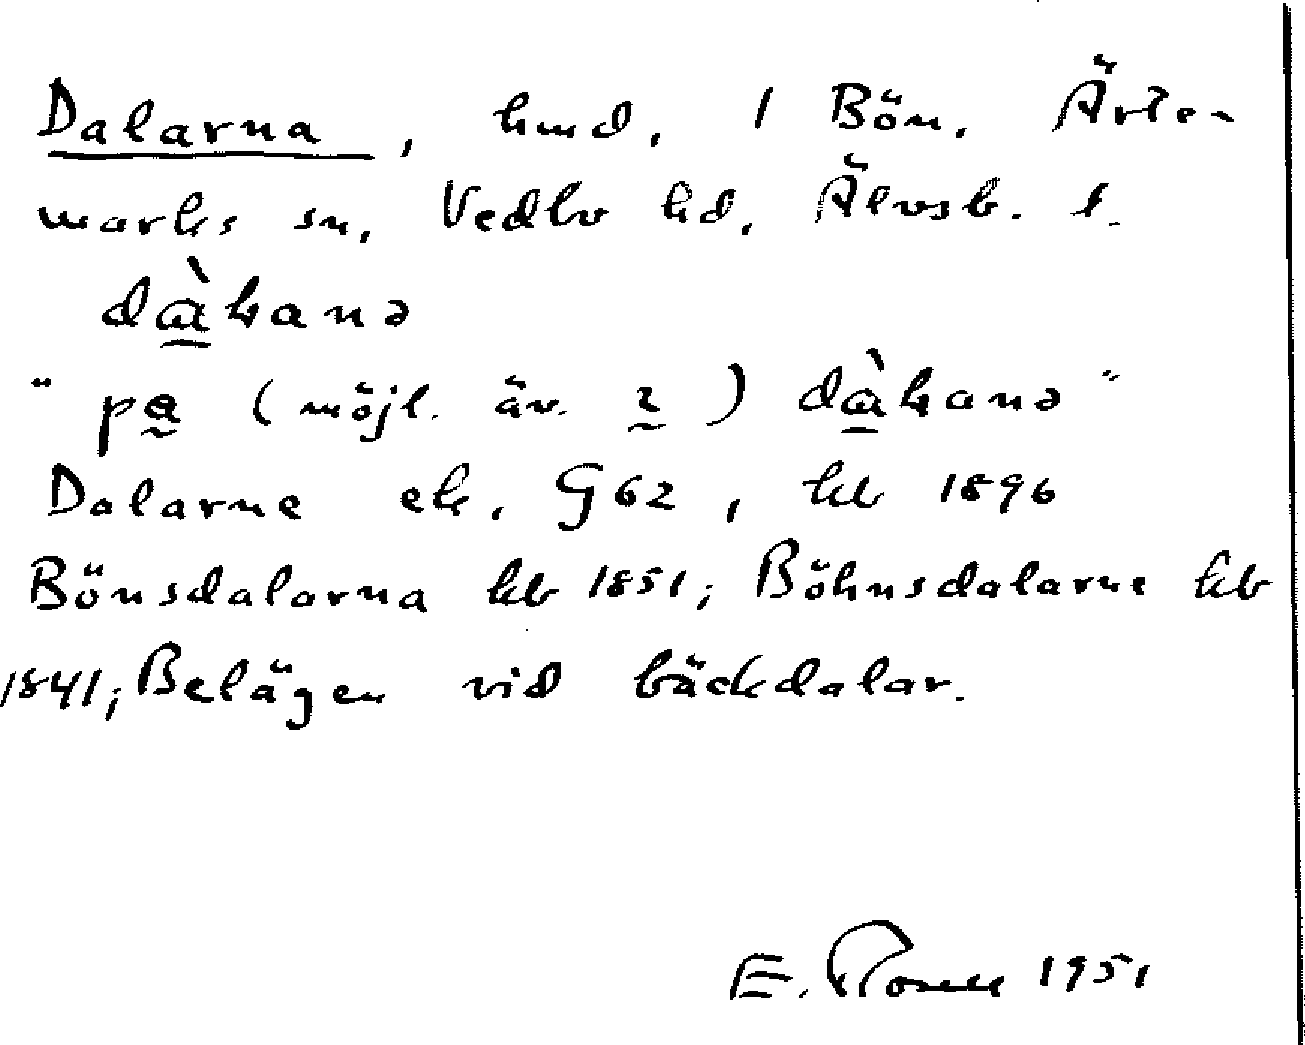 Dalarna, hmd, 1 Bön, Ärte-
marks sn, Vedbo hd, Älvsb. l.
dàɫanə
"på (möjl. äv. ɩ) dàɫanə"
Dalarne ek. G62, kb 1896
Bönsdalarna kb 1851; Böhnsdalarne kb
1841; Belägen vid bäckdalar.
E. 1951